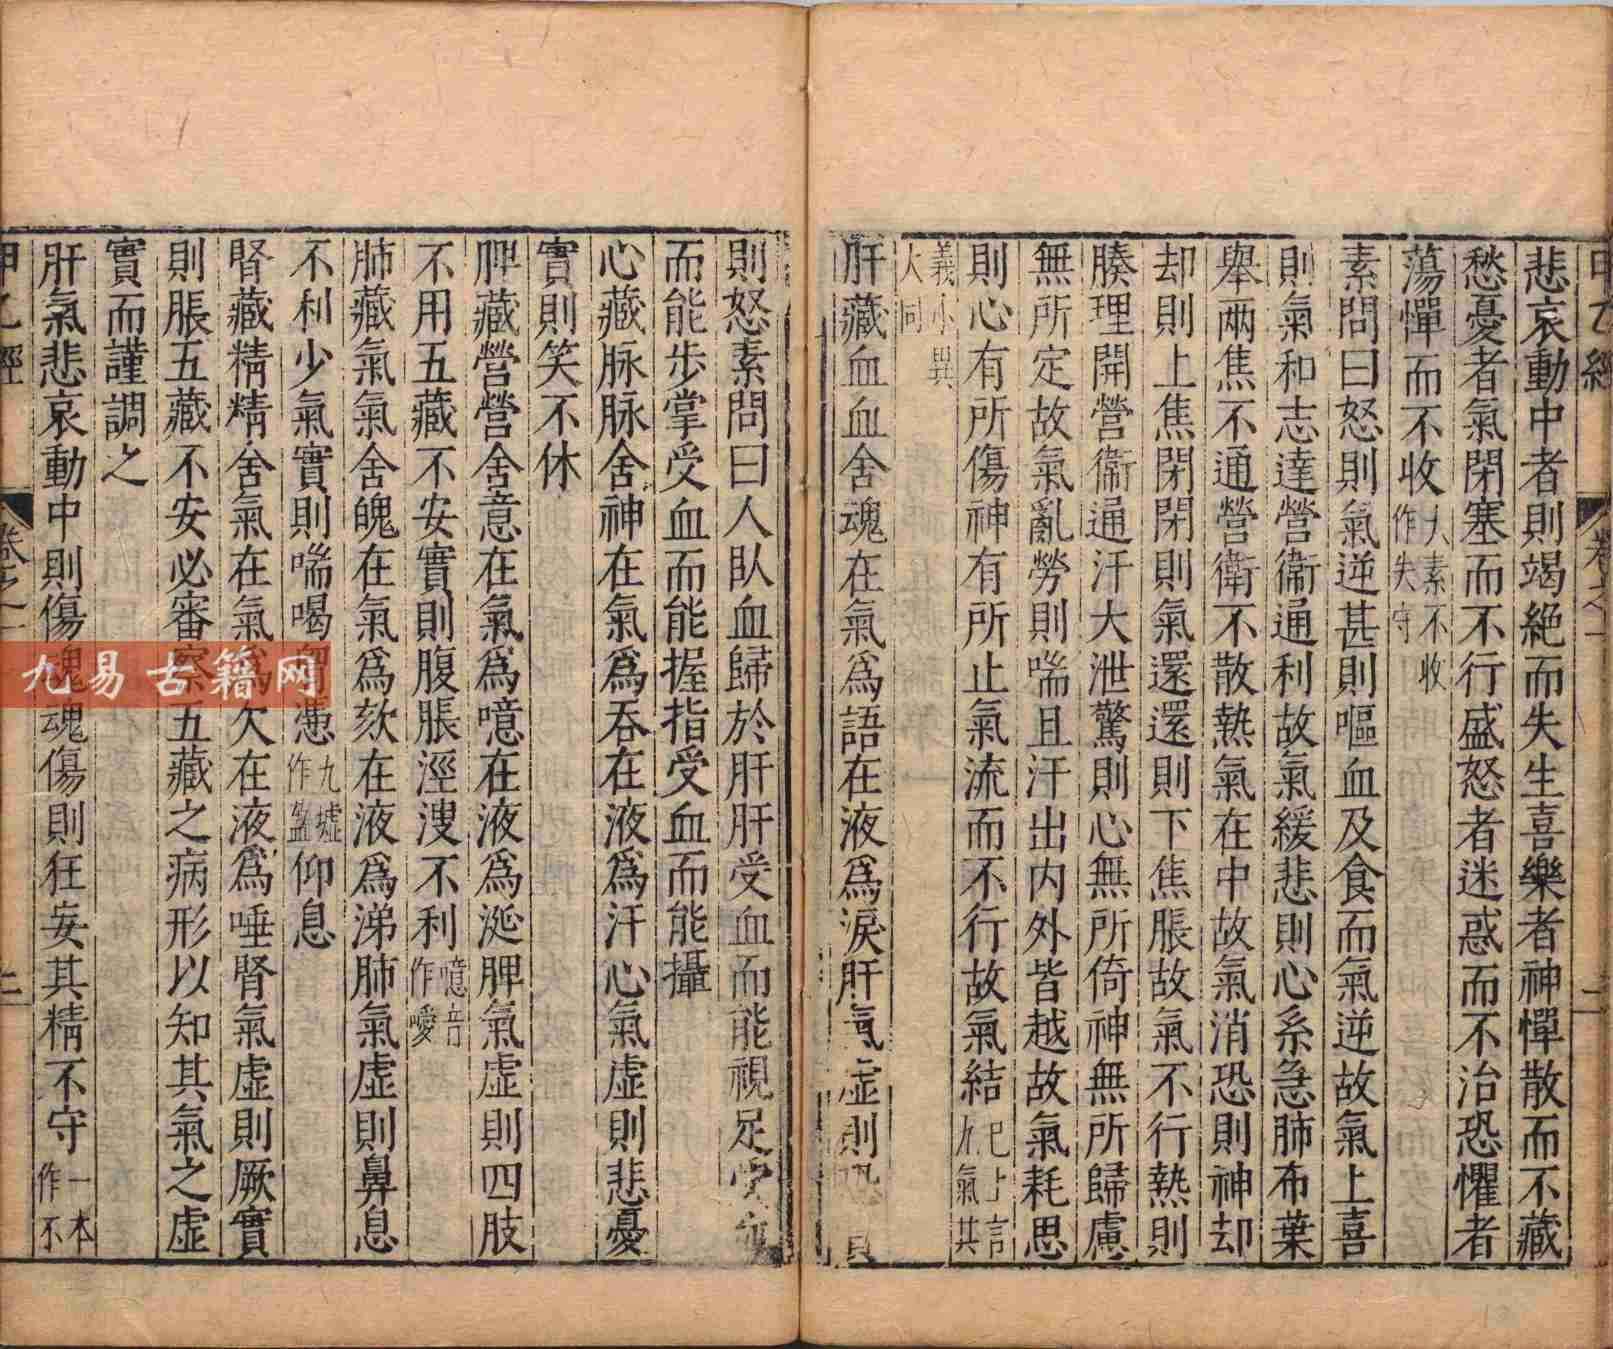 悲哀動中者則竭絶而失生喜樂者神憚散而不藏
愁憂者氣閉塞而不行盛怒者迷惑而不治恐懼者
蕩憚而不收太素不收作失守
素問曰怒則氣逆甚則嘔血及食而氣逆故氣上喜
則氣和志達營衞通利故氣緩悲則心系急肺布葉
舉兩焦不通營衛不散熱氣在中故氣消恐則神却
却則上焦閉閉則氣還還則下焦脹故氣不行熱則
腠理開營衞通汗大泄驚則心無所倚神無所歸慮
無所定故氣亂勞則喘且汗出内外皆越故氣耗思
則心有所傷神有所止氣流而不行故氣結已上言九氣其
義小異大同
肝藏血血舍魂在氣爲語在液爲淚肝氣虛則恐
則怒素問曰人臥血歸於肝肝受血而能視足受
而能步掌受血而能握指受血而能攝
心藏脉脉舍神在氣爲吞在液爲汗心氣虛則悲憂
實則笑不休
脾藏營營舍意在氣爲噫在液爲涎脾氣虛則四肢
不用五藏不安實則腹脹涇溲不利噫音作噯
肺藏氣氣舍魄在氣爲欬在液爲涕肺氣虛則鼻息
不利少氣實則喘喝憑九墟作盈仰息
腎藏精精舍氣在氣爲欠在液爲唾腎氣虛則厥實
則脹五藏不安必審察五藏之病形以知其氣之虛
實而謹調之
肝氣悲哀動中則傷魂魂傷則狂妄其精不守一本作不
甲乙經
卷之一
二
九易古籍网